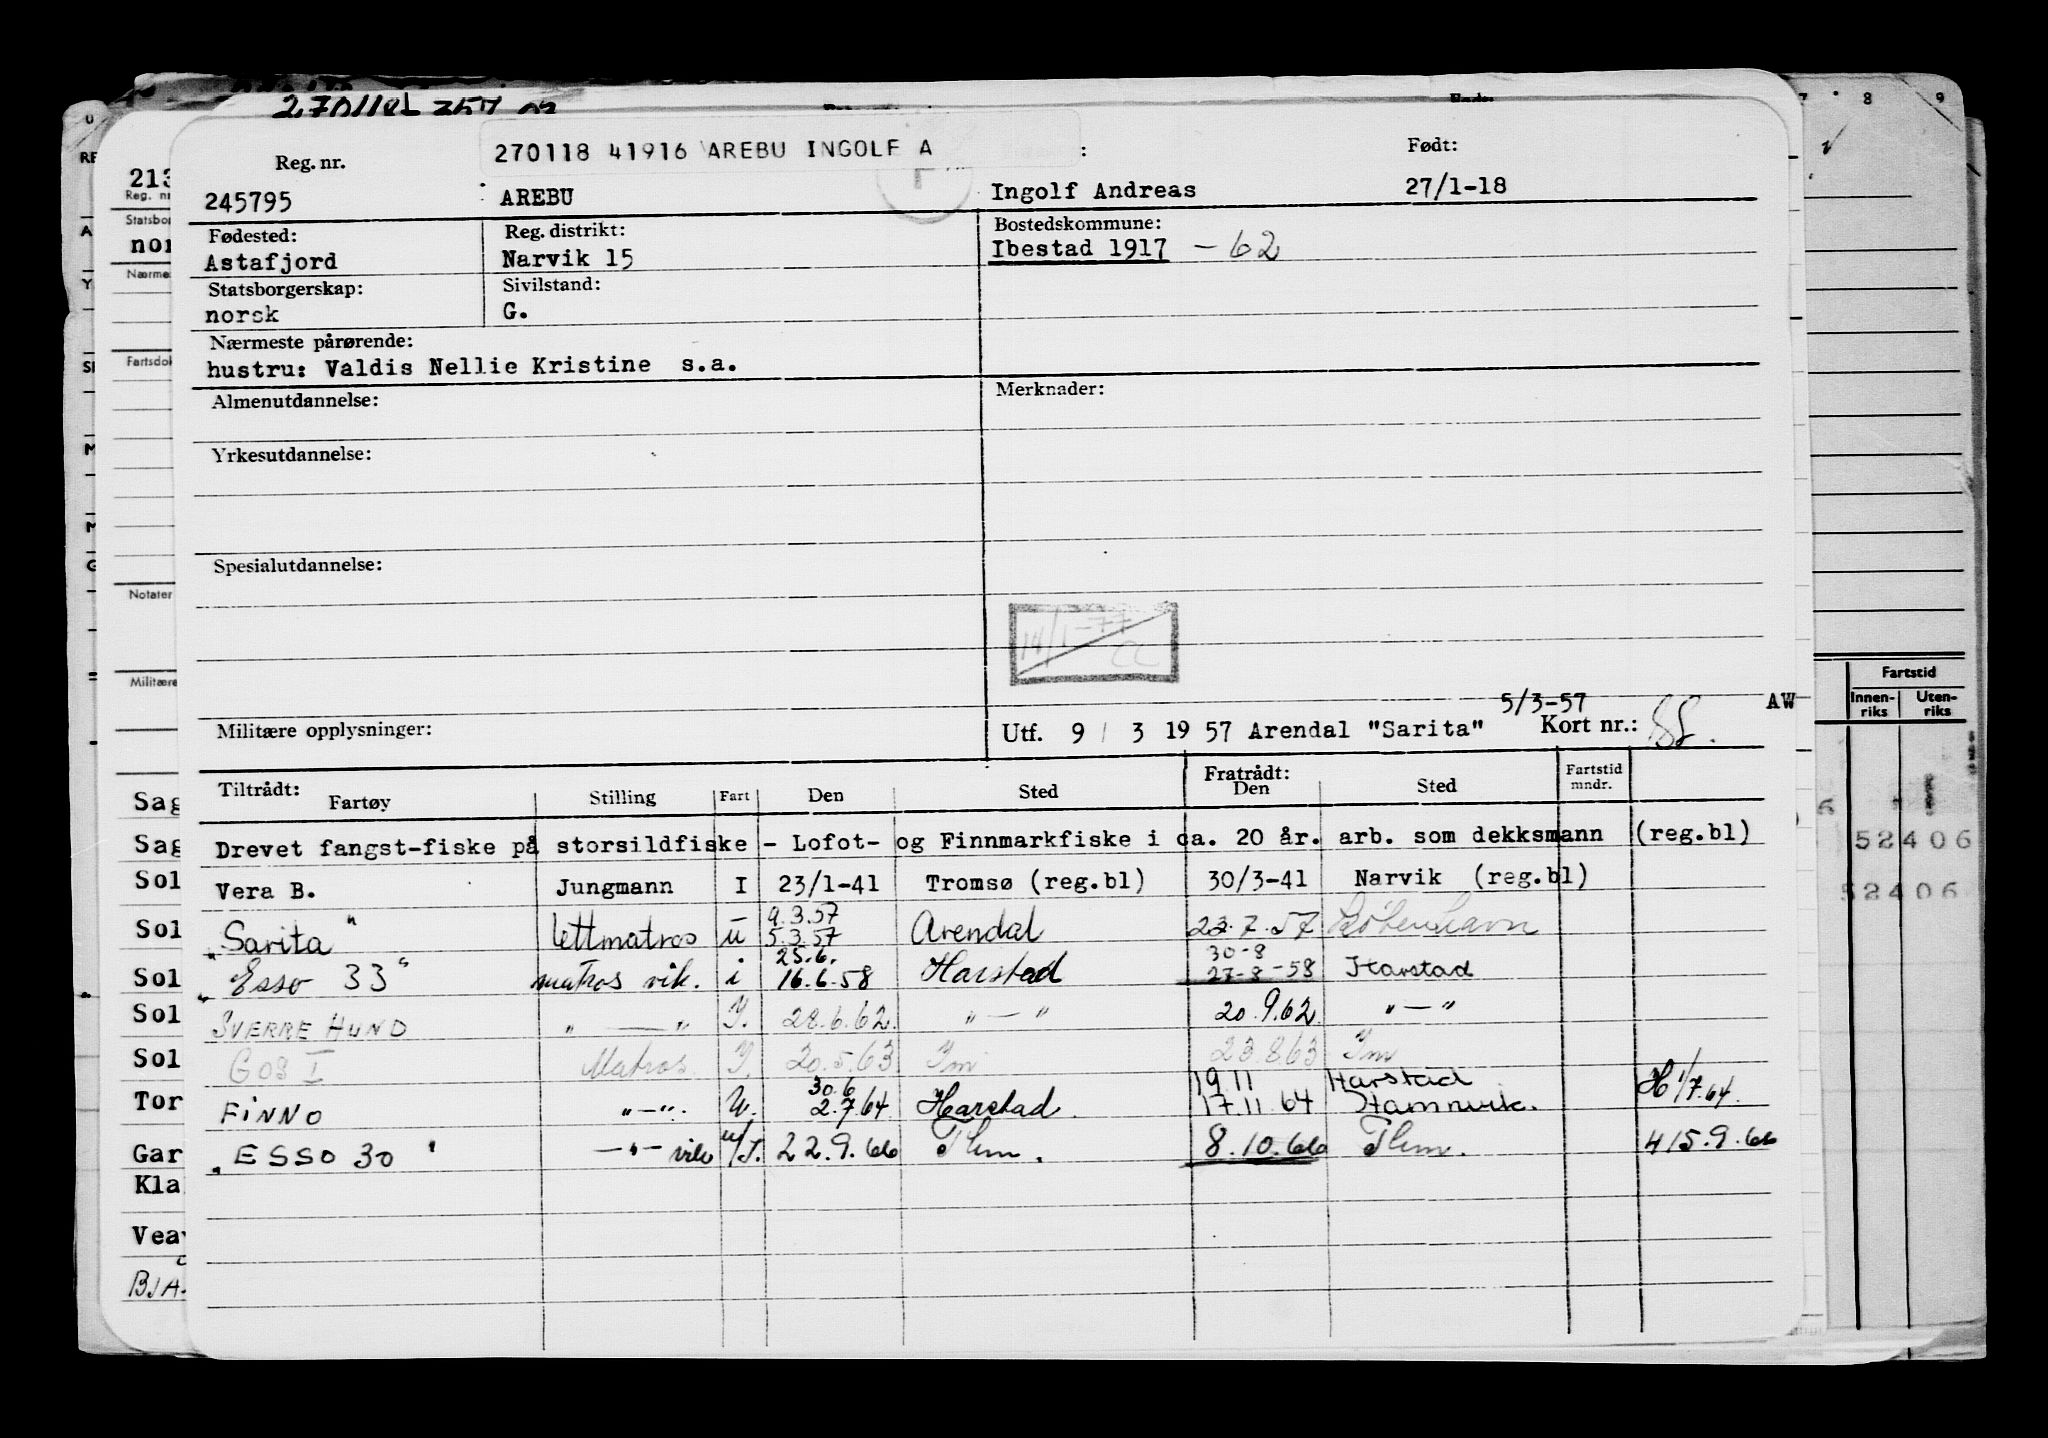 270118 41916 AREBU INGOLF A
Reg. nr. Født:
245795 AREBU Ingolf Andreas 27/1-18
Fødested: Reg. distrikt: Bostedskommune:
Astafjord Narvik 15 Ibestad 1917 - 62
Statsborgerskap: Sivilstand:
norsk G.
Nærmeste pårørende:
hustru: Valdis Nellie Kristine s.a.
Almenutdannelse: Merknader:
Yrkesutdannelse:
Spesialutdannelse:
14/1-77
5/3-57 AW
Militære opplysninger: Utf. 9 / 3 19 57 Arendal "Sarita" Kort nr.:
Tiltrådt: Fratrådt: Fartstid
Fartøy Stilling Fart Den Sted Den Sted mndr.
Drevet fangst-fiske på storsildfiske - Lofot- og Finnmarkfiske i ca. 20 år. arb. som dekksmann (reg.bl)
Vera B. Jungmann I 23/1-41 Tromsø (reg.bl) 30/3-41 Narvik (reg.bl)
9.3.57
"Sarita" lettmatros u 5.3.57 Arendal 23.7.57 København
25.6. 30-8
"Esso 33" matros vik. i 16.6.58 Harstad 27-8-58 Harstad
SVERRE HUND " — " I. 28.6.62. " — " 20.9.62 " — "
GOS I Matros I. 20.5.63 Tm 23.8.63 Tm
30.6 19.11 Harstad
FINNO " — " U. 2.7.64 Harstad. 17.11.64 Hamnvik. H 1/7.64.
"ESSO 30" — " — vik u/I. 22.9.66 Thm. 8.10.66 Thm. 415.9.66
213
Reg. nr
Statsbor
nor
Nærmes
Fartsdok
Notater
Militære
Sag
Sag
Sol
Sol
Sol
Sol
Sol
Tor
Gar
Kla
Vea
BJA
8 9
Fartstid
Innen-riks Uten-riks
52406
52406